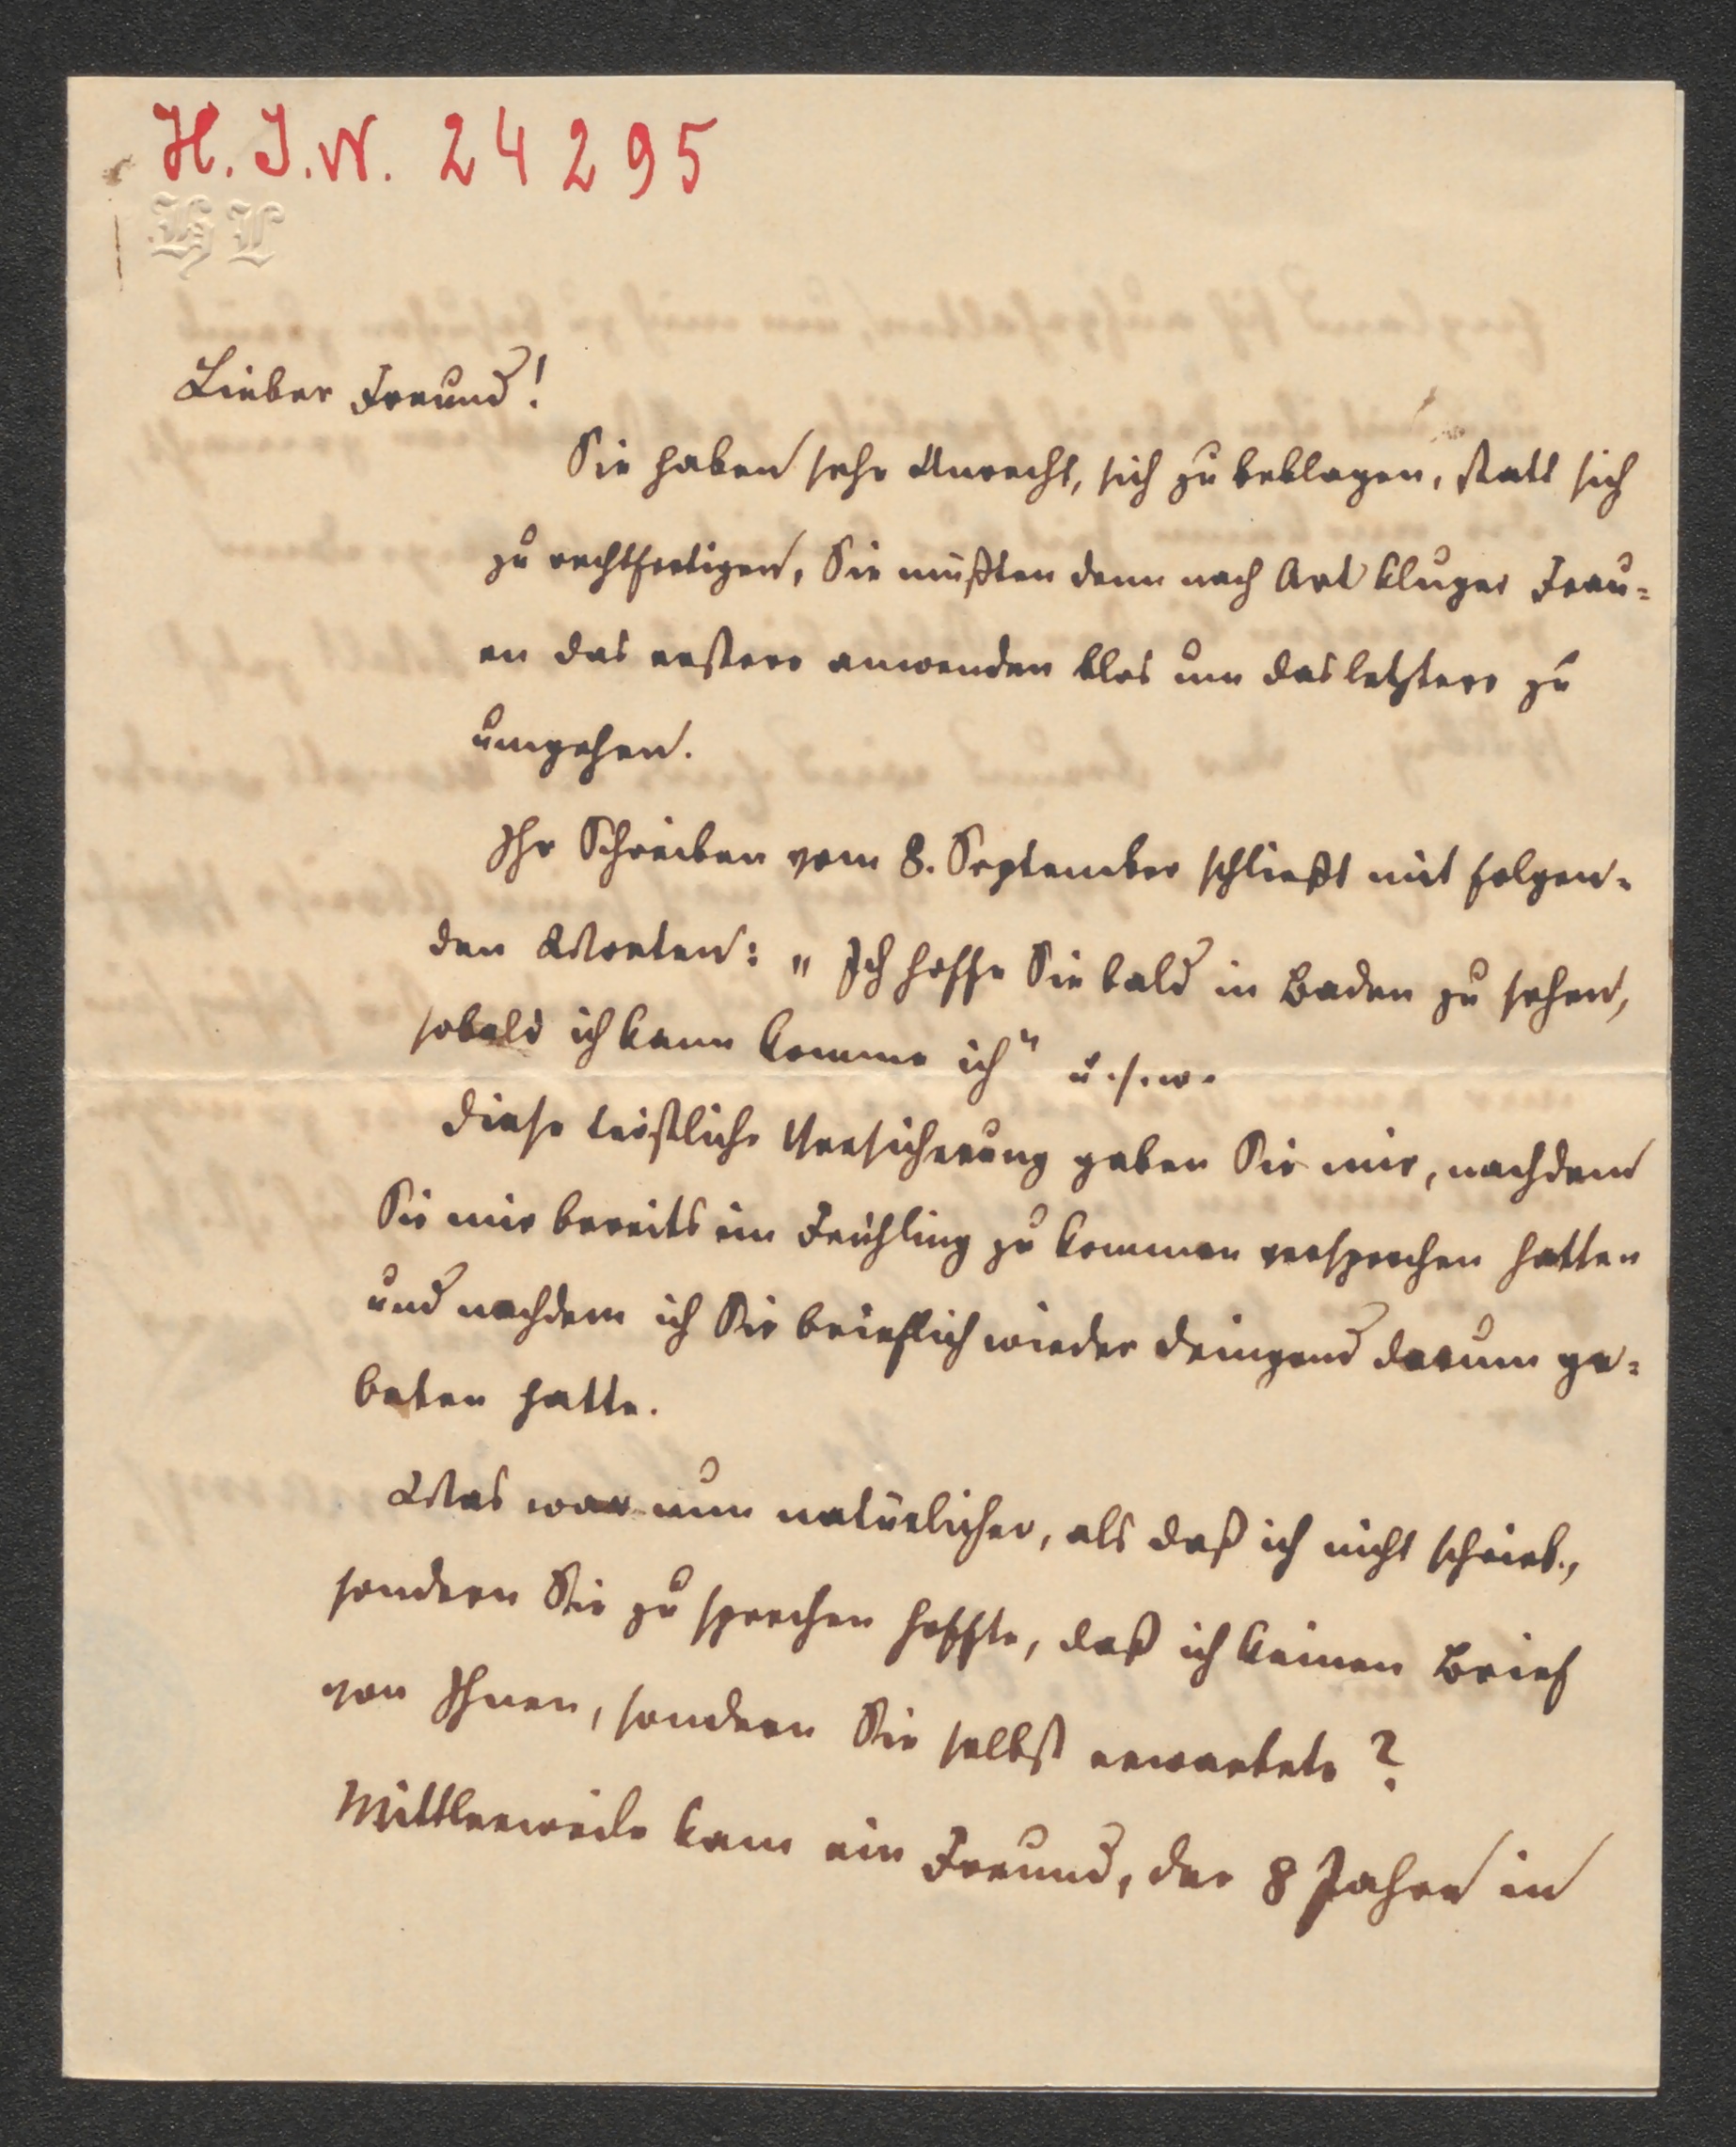 H. I. N. 24295
HL
Lieber Freund!
Sie haben sehr Unrecht, sich zu beklagen, statt sich
zu rechtfertigen, Sie müßten denn nach Art kluger Frau-
en das erstere anwenden blos um das letztere zu
umgehen.
Ihr Schreiben vom 8. September schließt mit folgen-
den Worten: „Ich hoffe Sie bald in Baden zu sehen,
sobald ich kann komme ich" u. s. w.
Diese tröstliche Versicherung gaben Sie mir, nachdem
Sie mir bereits im Frühling zu kommen versprochen hatten
und nachdem ich Sie brieflich wieder dringend darum ge-
beten hatte.
Was war nun natürlicher, als daß ich nicht schrieb,
sondern Sie zu sprechen hoffte, daß ich keinen Brief
von Ihnen, sondern Sie selbst erwartete?
Mittlerweile kam ein Freund, der 8 Jahre in